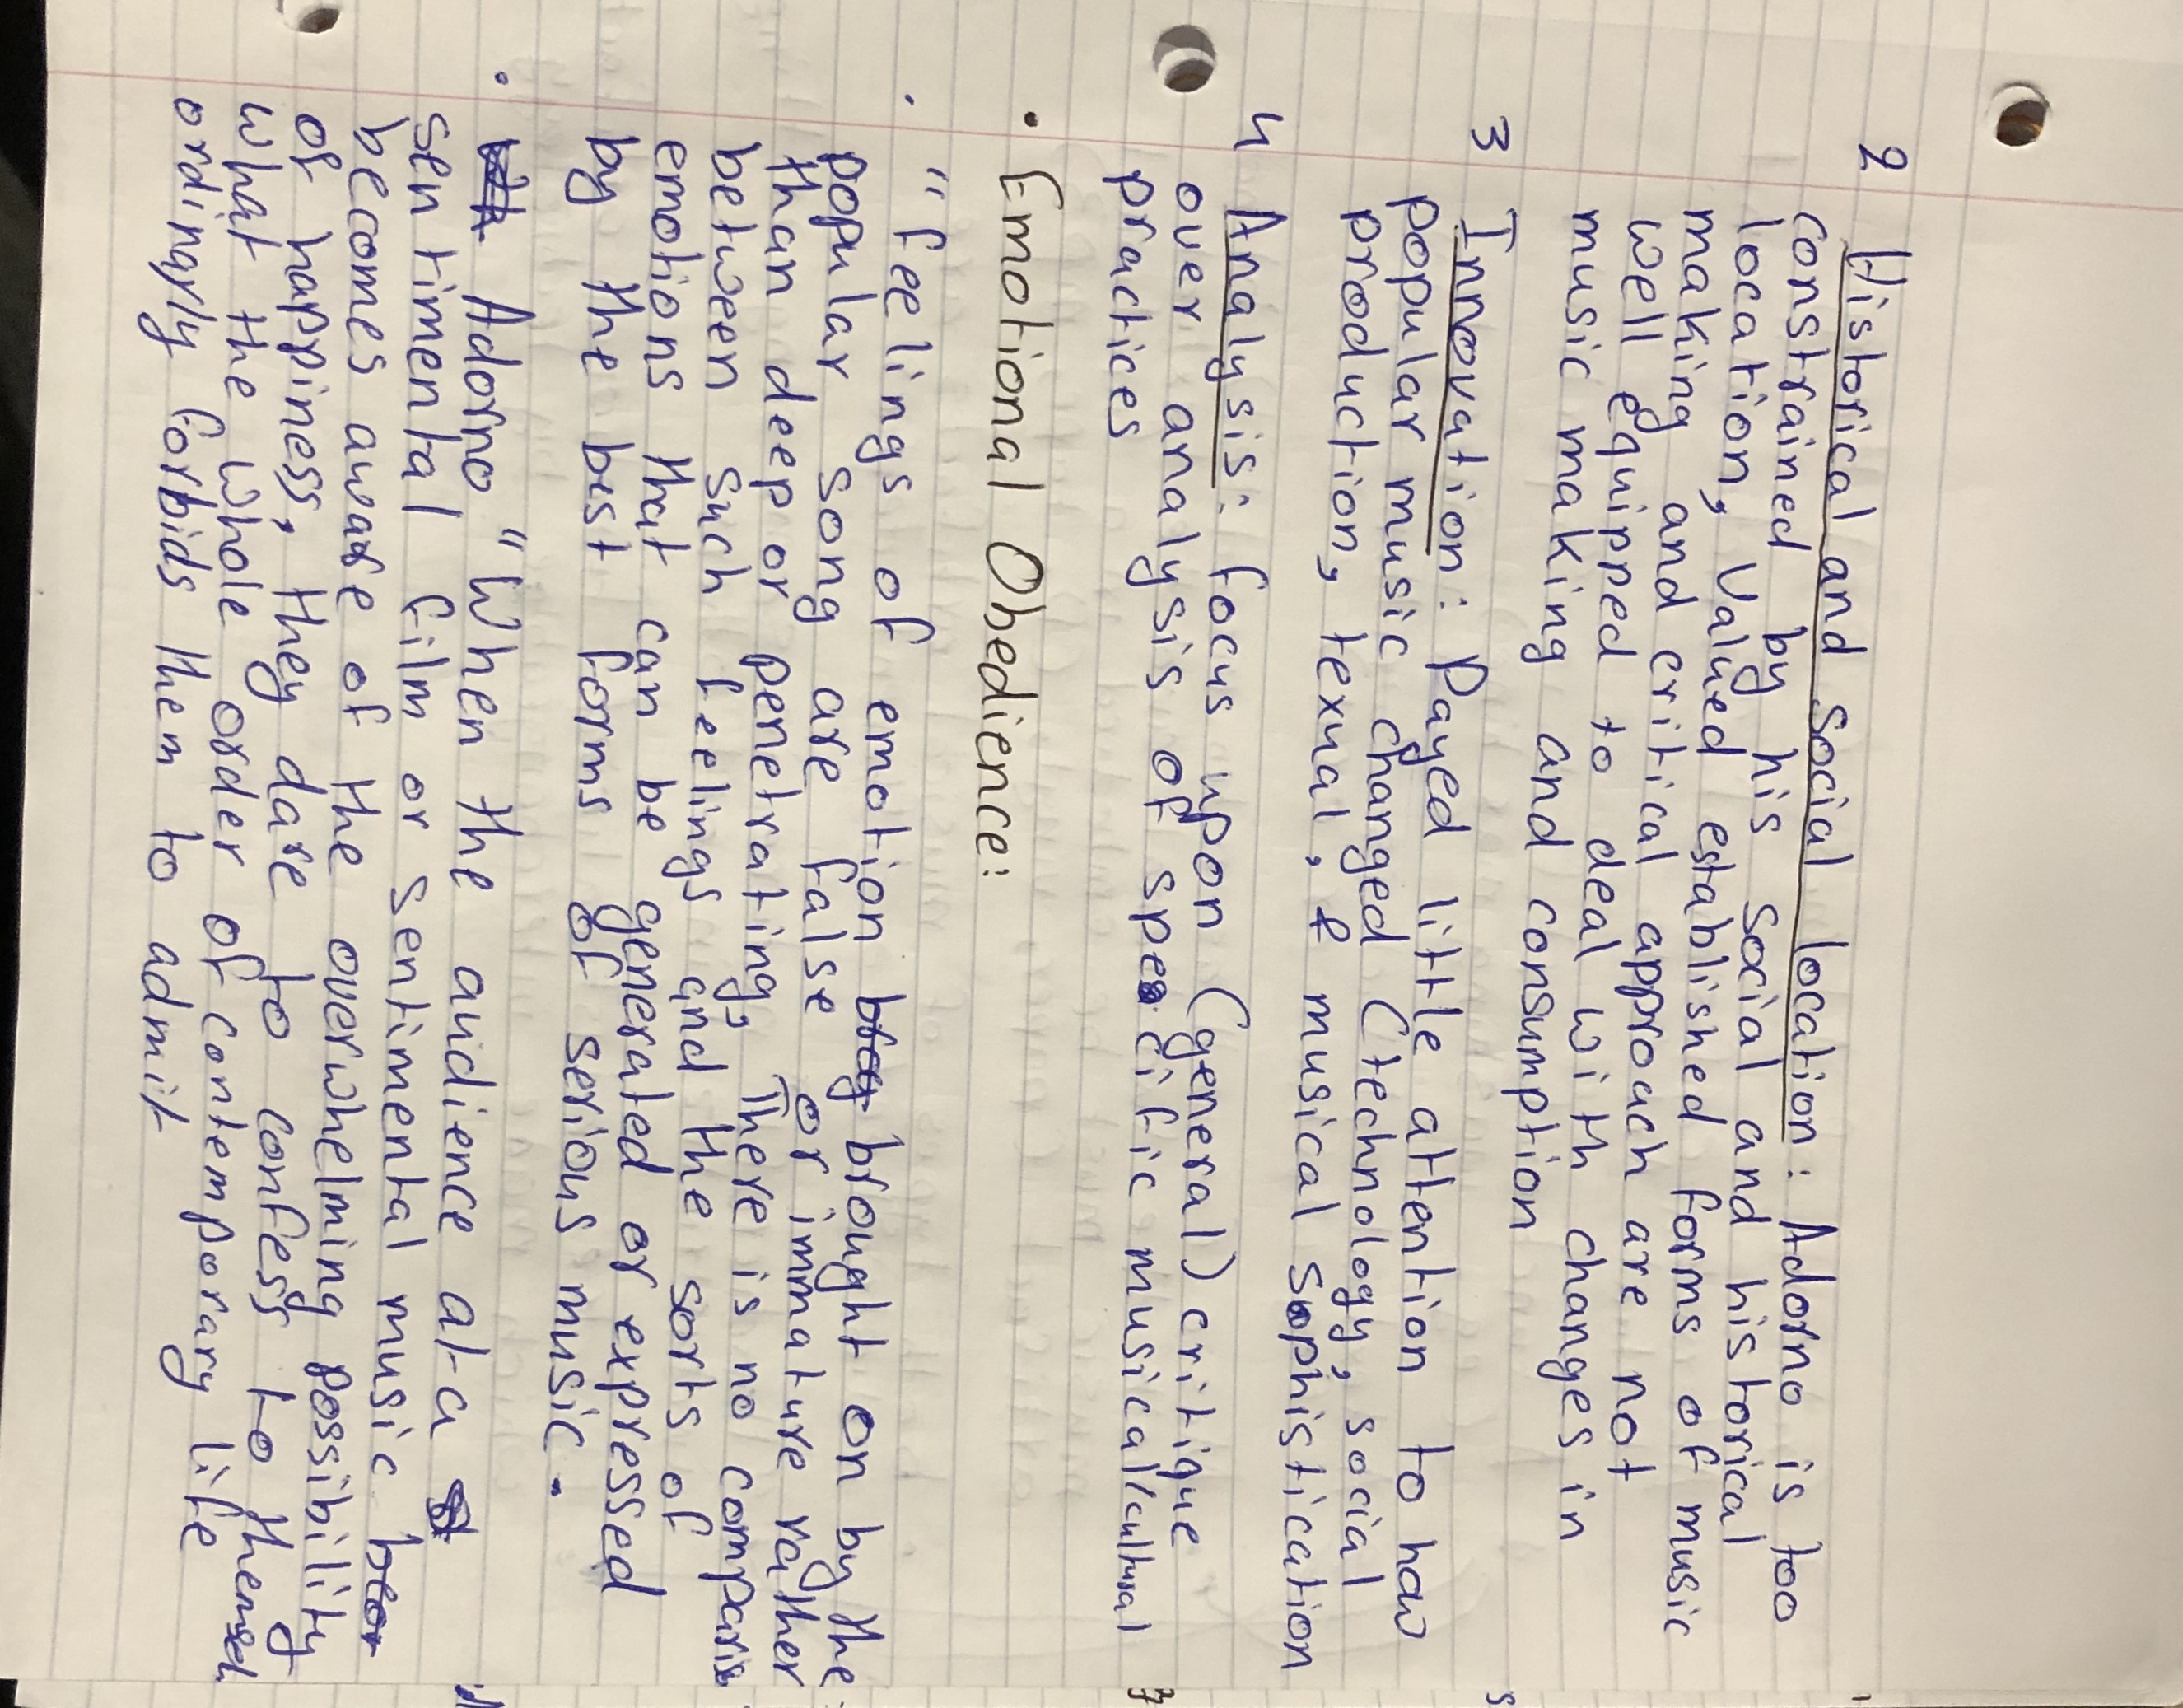 2 Historical and Social location: Adorno is too
constrained by his social and historical
location, valued established forms of music
making and critical approach are not
well equipped to deal with changes in
music making and consumption
3 Innovation: Payed little attention to how
popular music changed (technology, social
production, texual, & musical sophistication
4 Analysis: focus upon (general) critique
over analysis of specific musical/cultural
practices
• Emotional Obedience:
• "feelings of emotion brought on by the
popular song are false or immature rather
than deep or penetrating, There is no comparis
between such feelings and the sorts of
emotions that can be generated or expressed
by the best forms of serious music.
• Adorno "When the audience at a
sentimental film or sentimental music
becomes aware of the overwhelming possibility
of happiness, they dare to confess to themsel
what the whole order of contemporary life
ordinarly forbids them to admit